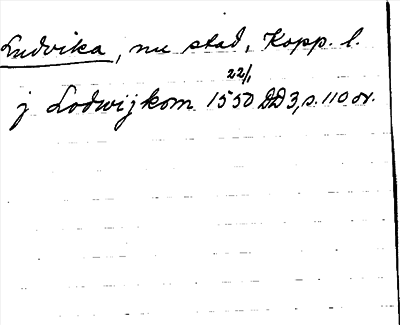 Ludvika, nu stad, Kopp. l.
j Lodwijkom 1550 22/1 DD3, s. 110 or.